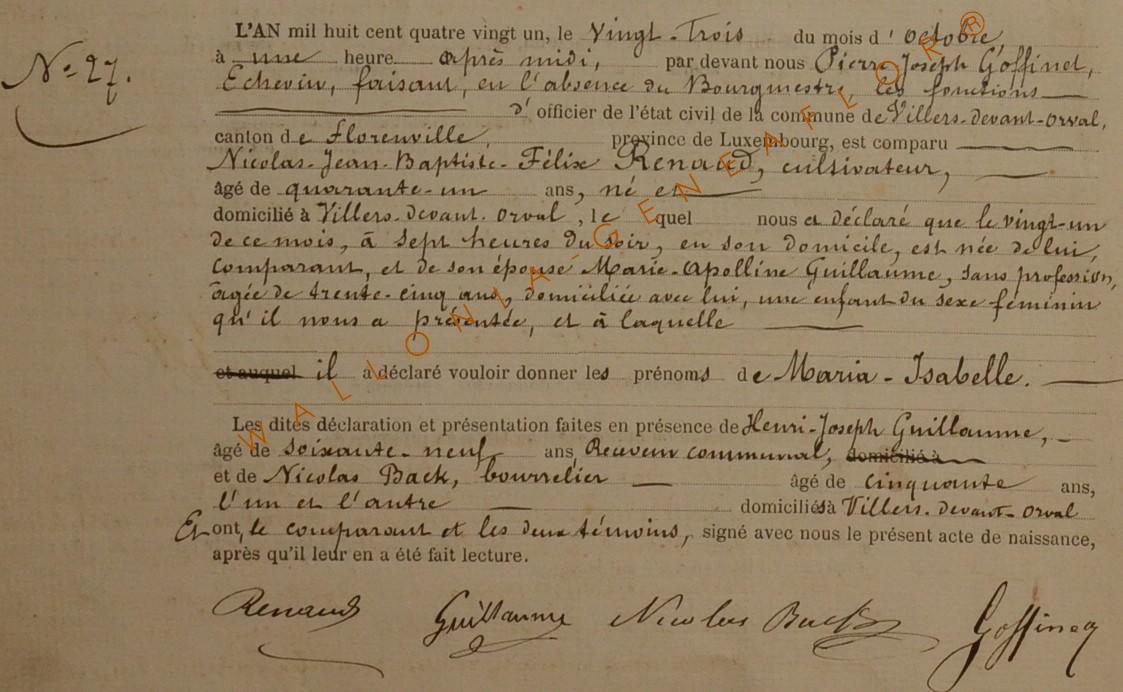 Nº 27.
L'AN mil huit cent quatre vingt un, le Vingt-Trois du mois d'octobre,
à une heure après midi, par devant nous Pierre Joseph Goffinet,
Echevin, faisant, en l'absence du Bourgmestre, les fonctions
d'officier de l'état civil de la commune de Villers-devant-Orval,
canton de Florenville, province de Luxembourg, est comparu
Nicolas-Jean-Baptiste-Félix Renaud, cultivateur,
âgé de quarante-un ans, né en
domicilié à Villers-devant-Orval, lequel nous a déclaré que le vingt-un
de ce mois, à sept heures du soir, en son domicile, est née de lui,
comparant, et de son épouse Marie-Apolline Guillaume, sans profession,
âgée de trente-cinq ans, domiciliée avec lui, une enfant du sexe féminin
qu'il nous a présentée, et à laquelle
et auquel il a déclaré vouloir donner les prénoms de Maria-Isabelle.
Les dites déclaration et présentation faites en présence de Henri-Joseph Guillaume,
âgé de soixante-neuf ans, Receveur communal, domicilié à
et de Nicolas Back, bourrelier âgé de cinquante ans,
l'un et l'autre domiciliés à Villers-devant-Orval
Et ont, le comparant et les deux témoins, signé avec nous le présent acte de naissance,
après qu'il leur en a été fait lecture.
Renaud Guillaume Nicolas Back Goffinet
WALLONIA-GENEAFLOR®